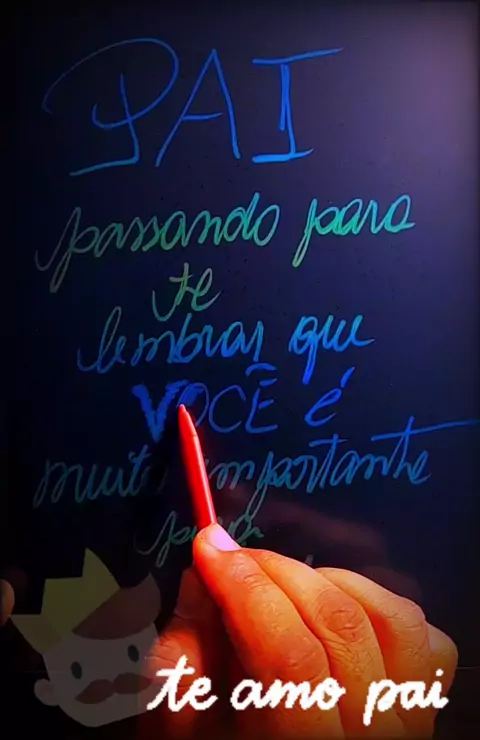 PAI
passando para
te
lembrar que
VOCÊ é
muito importante
te amo pai